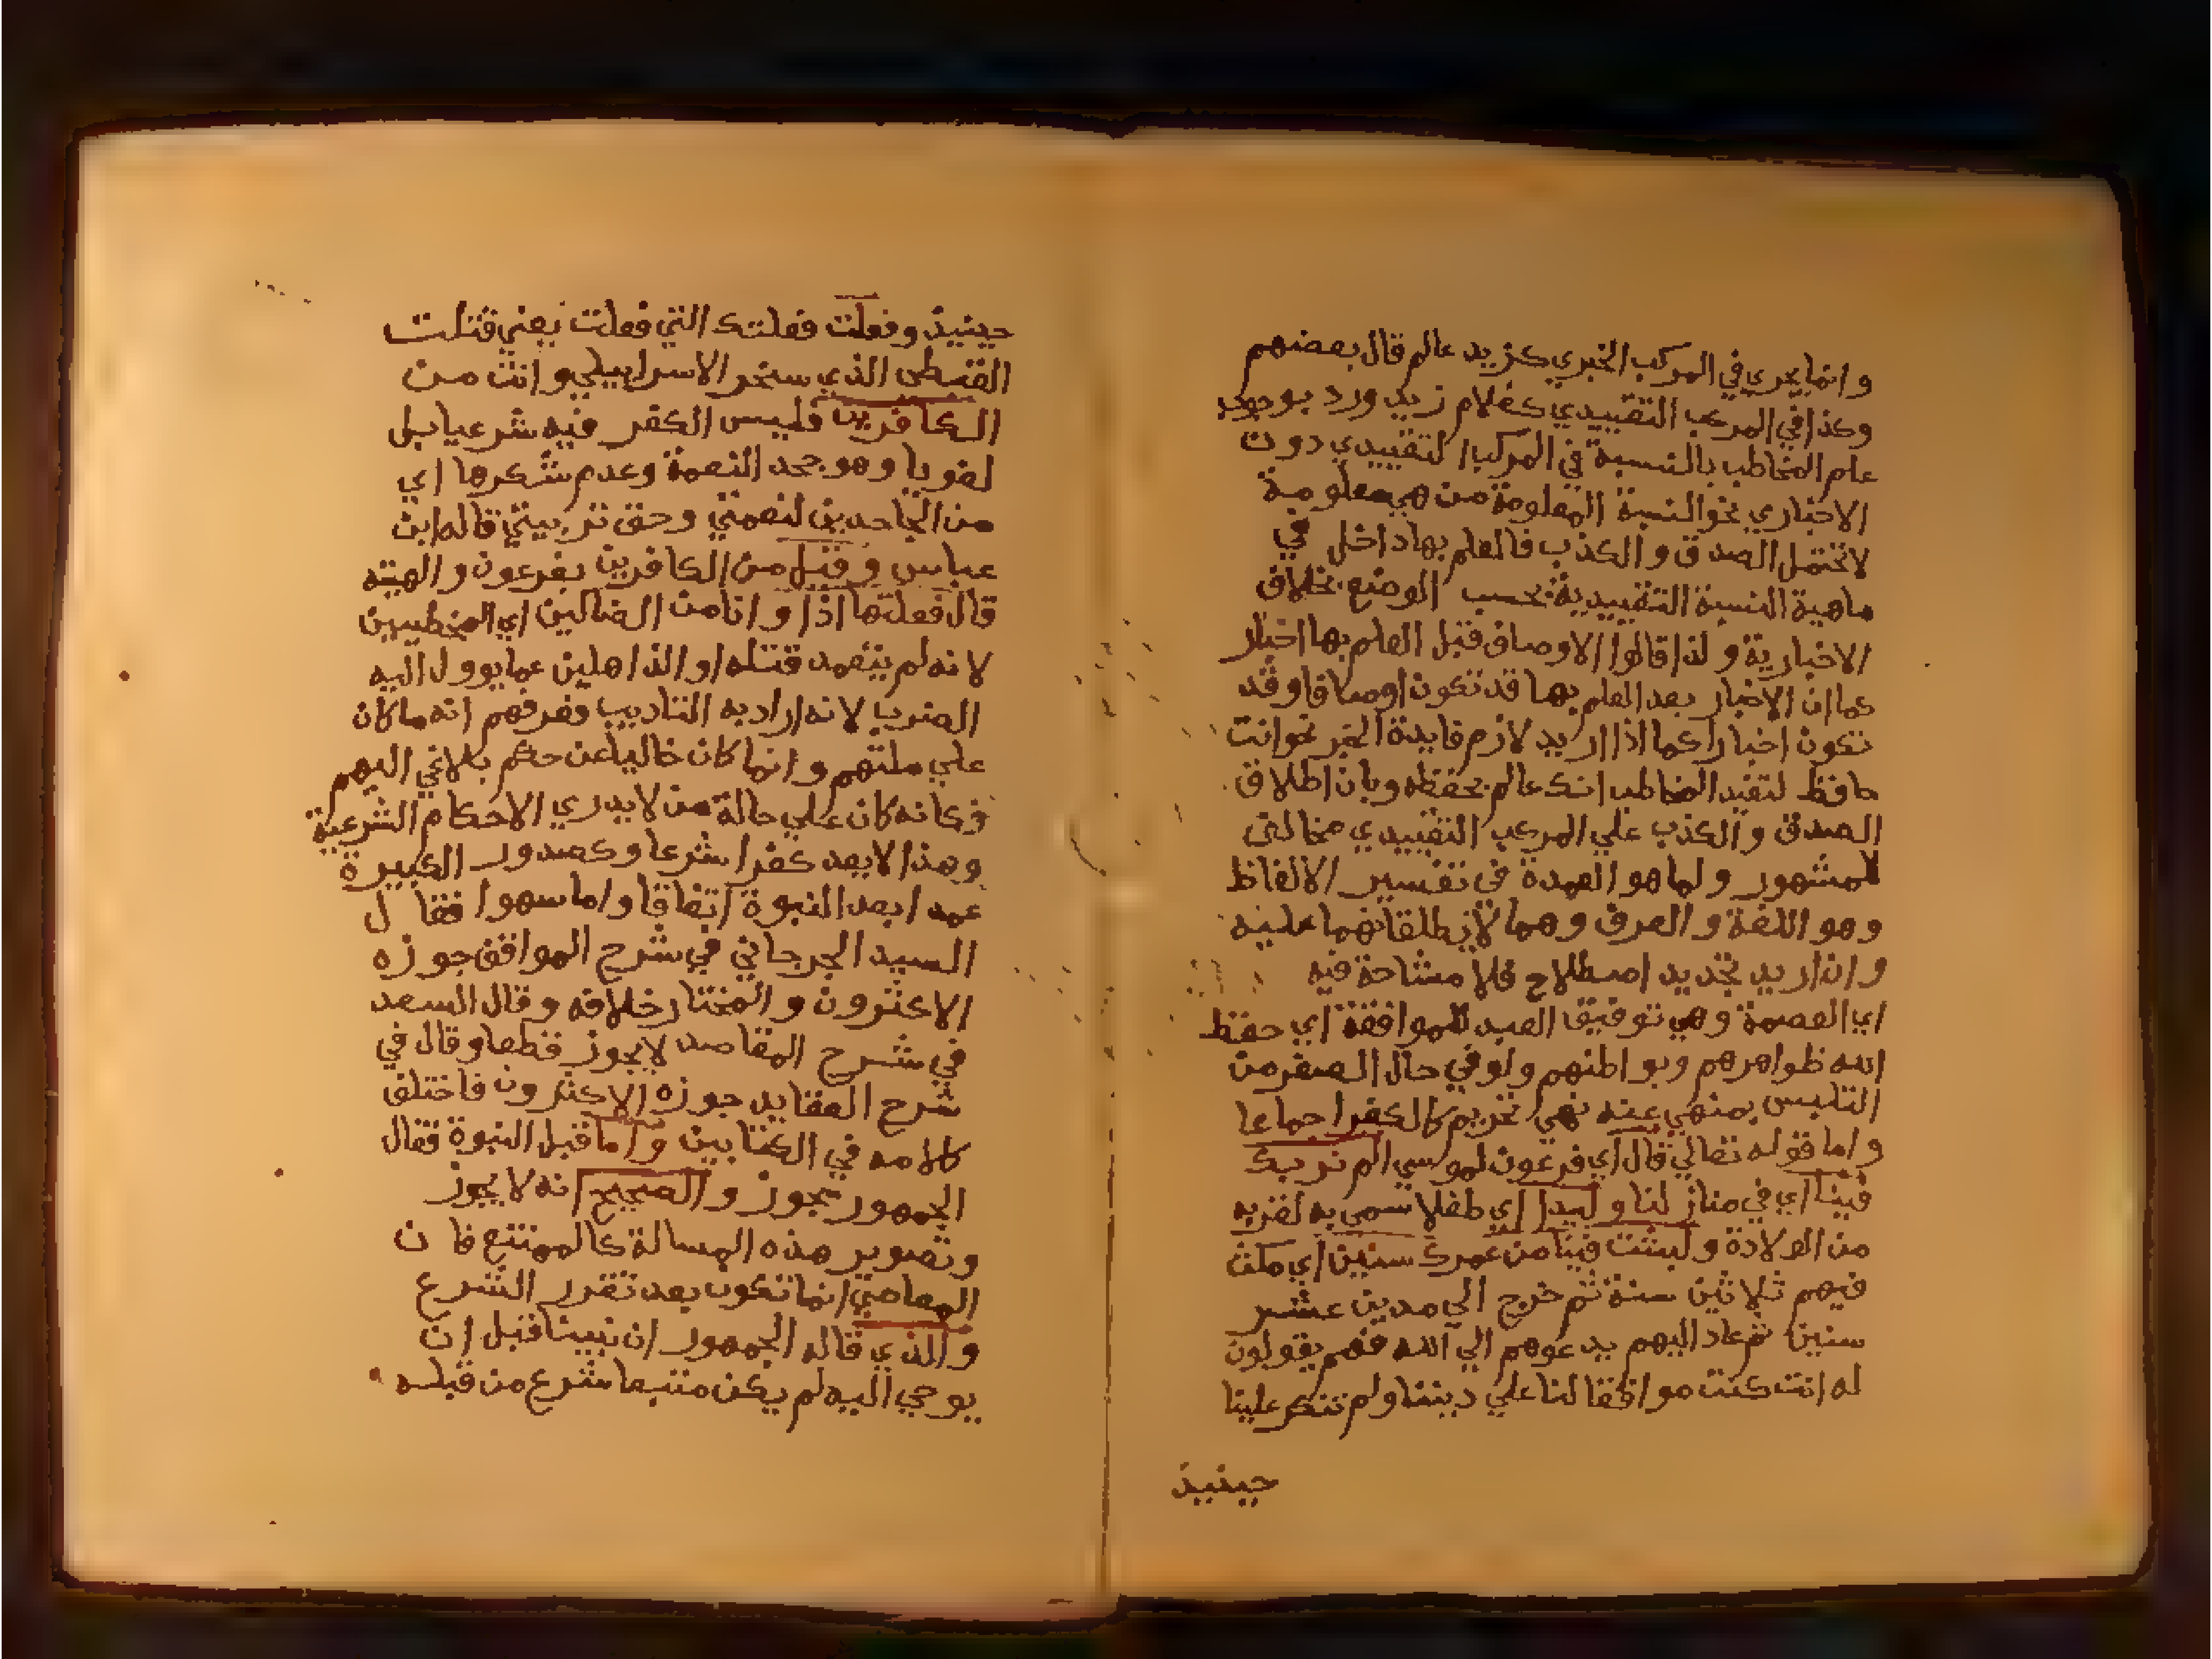 وانما يجري في المركب الخبري كزيد عالم قال بعضهم
وكذا في المركب التقييدي كغلام زيد ورد بوجوب
علم المخاطب بالنسبة في المركب التقييدي دون
الاخباري نحو النسبة المعلومة من هي معلومة
لا تحتمل الصدق والكذب فالعلم بها داخل في
ماهية النسبة التقييدية بحسب الوضع بخلاف
الاخبارية ولذا قالوا الاوصاف قبل العلم بها اخبار
كما ان الاخبار بعد العلم بها قد تكون اوصافا وقد
تكون اخبارا كما اذا اريد لازم فايدة الخبر نحو انت
حافظ لتفيد المخاطب انك عالم بحفظه وبان اطلاق
الصدق والكذب علي المركب التقييدي مخالف
للمشهور ولما هو العمدة في تفسير الالفاظ
وهو اللغة والعرف وهما لا يطلقانهما عليه
وان اريد تجديد اصطلاح فلا مشاحة فيه
اي العصمة وهي توفيق العبد للموافقة اي حفظ
الله ظواهرهم وبواطنهم ولو في حال الصغر من
التلبس بمنهي عنه نهي تحريم كالكفر اجماعا
واما قوله تعالي قال اي فرعون لموسي الم نربك
فينا اي في منازلنا وليدا اي طفلا سمي به لقربه
من الولادة ولبثت فينا من عمرك سنين اي مكث
فيهم ثلاثين سنة ثم خرج الي مدين عشر
سنين ثم عاد اليهم يدعوهم الي الله فهم يقولون
له انت كنت موافقا لنا علي ديننا ولم تنكر علينا
حينيذ
حينيذ وفعلت فعلتك التي فعلت يعني قتلت
القبطي الذي سخر الاسراييلي وانت من
الكافرين فليس الكفر فيه شرعيا بل
لغويا وهو جحد النعمة وعدم شكرها اي
من الجاحدين لنعمتي وحق تربيتي قاله ابن
عباس وقيل من الكافرين بفرعون والهيته
قال فعلتها اذا وانا من الضالين اي المخطيين
لانه لم يتعمد قتله او الذاهلين عما يوول اليه
الضرب لانه اراد به التاديب فعرفهم انه ما كان
علي ملتهم وانما كان خاليا عن حكم بلاغي اليهم
فكانه كان علي حالة من لا يدري الاحكام الشرعية
وهذا لا يعد كفرا شرعا وكصدور الكبيرة
عمدا بعد النبوة اتفاقا واما سهوا فقال
السيد الجرجاني في شرح المواقف جوزه
الاكثرون والمختار خلافه وقال السعد
في شرح المقاصد لا يجوز قطعا وقال في
شرح العقايد جوزه الاكثرون فاختلف
كلامه في الكتابين واما قبل النبوة فقال
الجمهور يجوز والصحيح انه لا يجوز
وتصوير هذه المسالة كالممتنع فان
المعاصي انما تكون بعد تقرر الشرع
والذي قاله الجمهور ان نبينا قبل ان
يوحي اليه لم يكن متبعا شرع من قبله